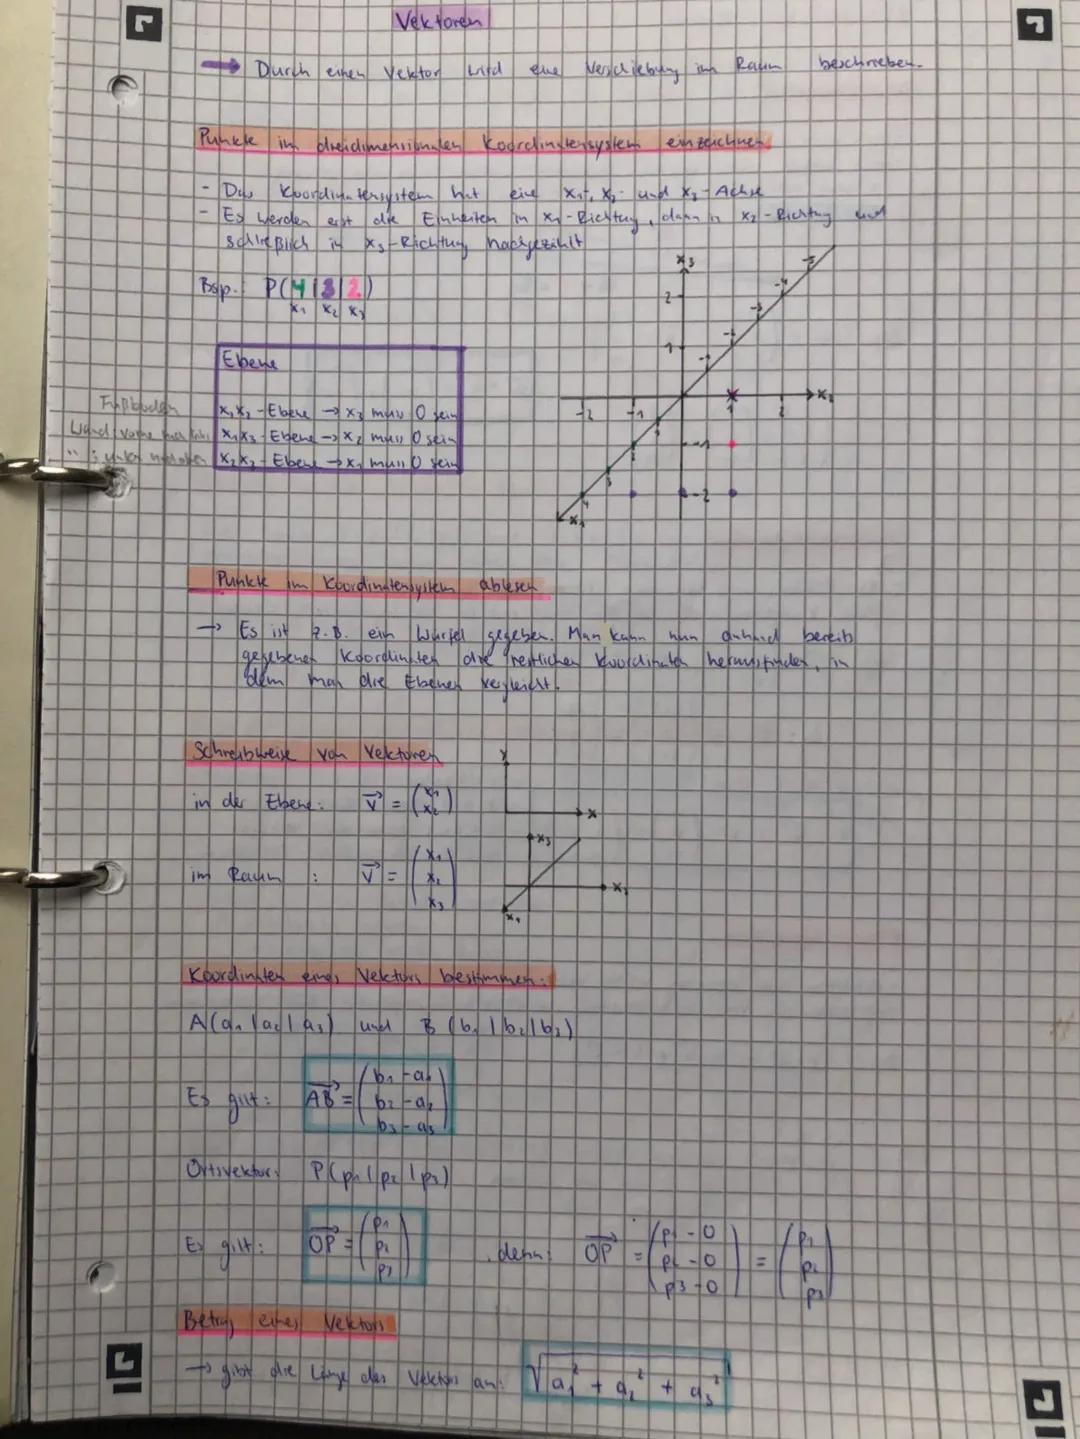 Vektoren
→ Durch einen Vektor wird eine Verschiebung im Raum beschrieben.
Punkte im dreidimensionalen Koordinatensystem einzeichnen
- Das Koordinatensystem hat eine x₁-, x₂- und x₃-Achse
- Es werden erst die Einheiten in x₁-Richtung, dann in x₂-Richtung und
schließlich in x₃-Richtung nachgezählt
Bsp.: P(4|3|2)
x₁ x₂ x₃
Ebene
x₁x₂-Ebene → x₃ muss 0 sein
x₁x₃-Ebene → x₂ muss 0 sein
x₂x₃-Ebene → x₁ muss 0 sein
Fußboden
Wand: vorne
x₃
2
1
-2 -1 1 2 x₂
-1
-2
-1 -2 -3 -4 -5
1 2 3 4
x₁
Punkte im Koordinatensystem ablesen
→ Es ist z.B. ein Würfel gegeben. Man kann nun anhand bereits
gegebener Koordinaten die restlichen Koordinaten herausfinden, in
dem man die Ebenen vergleicht.
Schreibweise von Vektoren
in der Ebene: v⃗ = (x₁ x₂)
y
x
im Raum : v⃗ = (x₁ x₂ x₃)
x₃
x₂
x₁
Koordinaten eines Vektors bestimmen:
A(a₁|a₂|a₃) und B(b₁|b₂|b₃)
Es gilt: AB⃗ = (b₁-a₁ b₂-a₂ b₃-a₃)
Ortsvektor: P(p₁|p₂|p₃)
Es gilt: OP⃗ = (p₁ p₂ p₃) , denn: OP⃗ = (p₁-0 p₂-0 p3-0) = (p₁ p₂ p₃)
Betrag eines Vektors
→ gibt die Länge des Vektors an: √a₁² + a₂² + a₃²